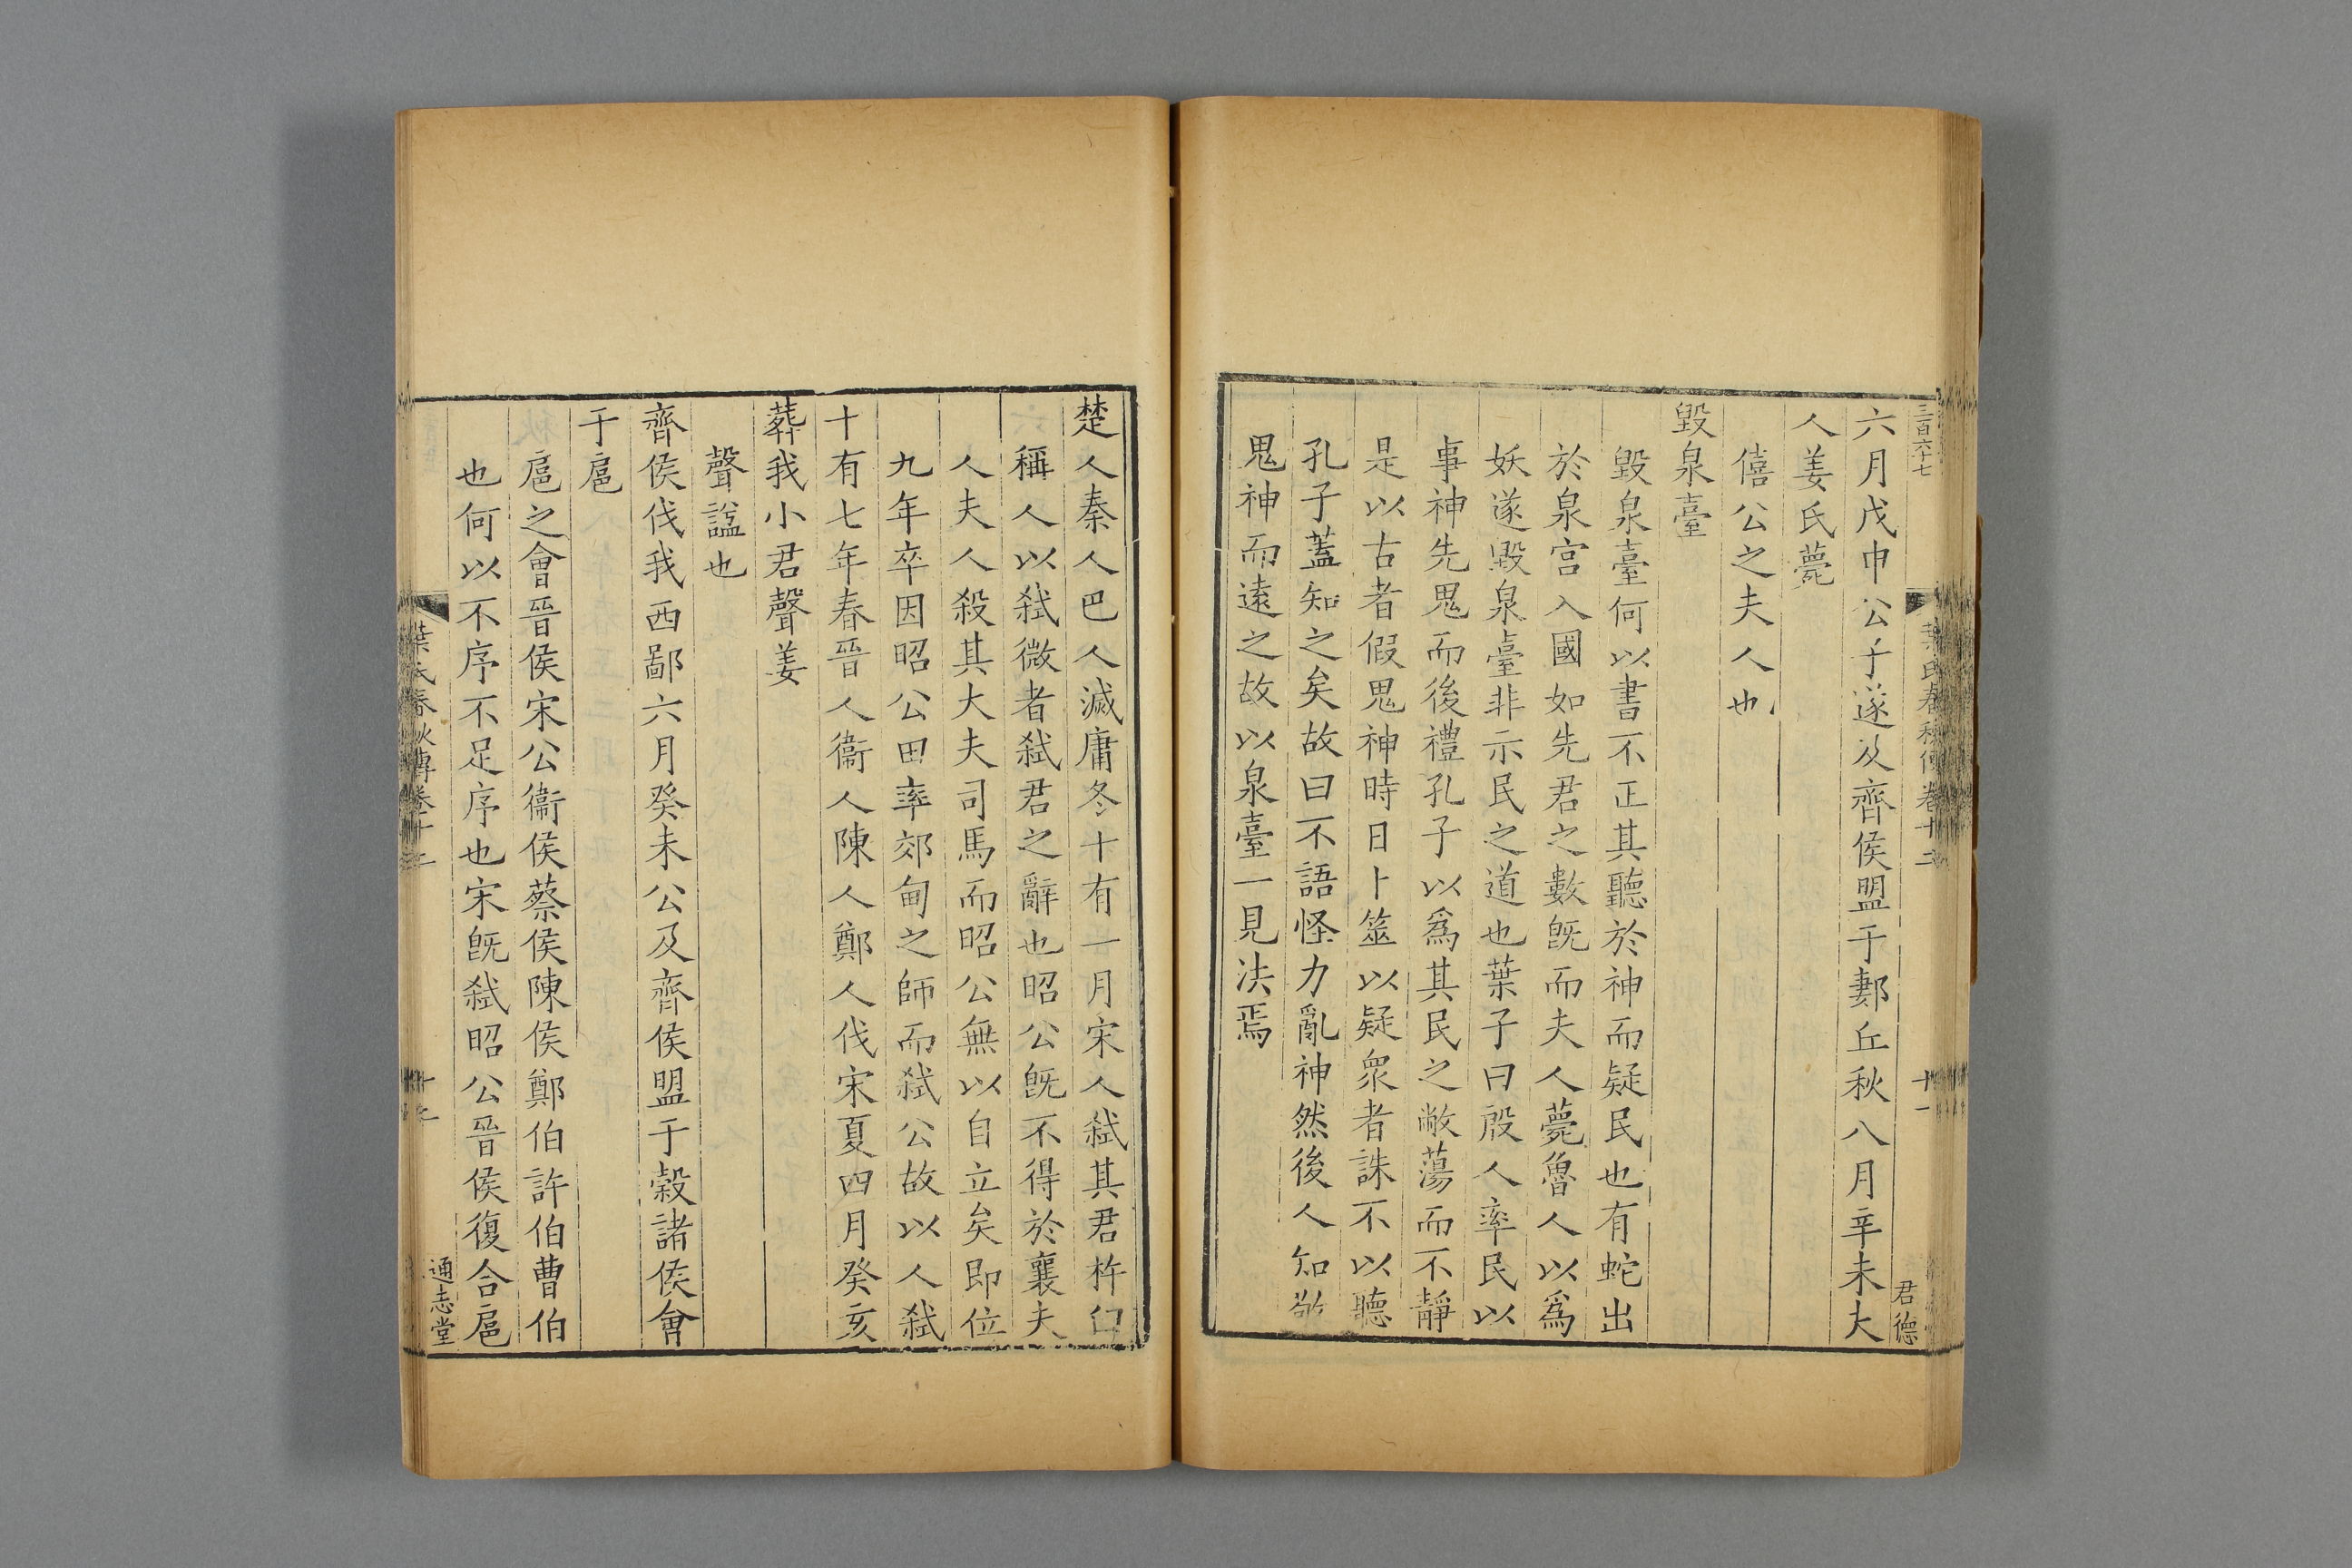 三百六十七
葉氏春秋傳卷十二
十一
君德
六月戊申公子遂及齊侯盟于郪丘秋八月辛未大
人姜氏薨
僖公之夫人也
毀泉臺
毀泉臺何以書不正其聽於神而疑民也有蛇出
於泉宮入國如先君之數旣而夫人薨魯人以爲
妖遂毀泉臺非示民之道也葉子曰殷人率民以
事神先鬼而後禮孔子以爲其民之敝蕩而不靜
是以古者假鬼神時日卜筮以疑衆者誅不以聽
孔子蓋知之矣故曰不語怪力亂神然後人知敬
鬼神而遠之故以泉臺一見法焉
楚人秦人巴人滅庸冬十有一月宋人弑其君杵臼
稱人以弑微者弑君之辭也昭公旣不得於襄夫
人夫人殺其大夫司馬而昭公無以自立矣即位
九年卒因昭公田率郊甸之師而弑公故以人弑
十有七年春晉人衞人陳人鄭人伐宋夏四月癸亥
葬我小君聲姜
聲諡也
齊侯伐我西鄙六月癸未公及齊侯盟于穀諸侯會
于扈
扈之會晉侯宋公衞侯蔡侯陳侯鄭伯許伯曹伯
也何以不序不足序也宋旣弑昭公晉侯復合扈
葉氏春秋傳卷十二
通志堂